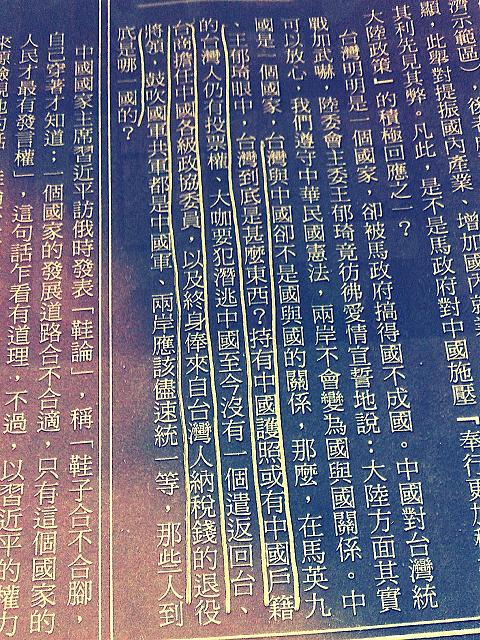 濟示範區），後
顯，此舉對提振國內產業、增加國內就業
其利先見其弊。凡此，是不是馬政府對中國施壓「奉行更加積
大陸政策」的積極回應之一？
台灣明明是一個國家，卻被馬政府搞得國不成國。中國對台灣統
戰加武嚇，陸委會主委王郁琦竟彷彿愛情宣誓地說：大陸方面其實
可以放心，我們遵守中華民國憲法，兩岸不會變為國與國關係。中
國是一個國家，台灣與中國卻不是國與國的關係，那麼，在馬英九
、王郁琦眼中，台灣到底是甚麼東西？持有中國護照或有中國戶籍
的台灣人仍有投票權、大咖要犯潛逃中國至今沒有一個遣返回台、
台商擔任中國各級政協委員，以及終身俸來自台灣人納稅錢的退役
將領，鼓吹國軍共軍都是中國軍、兩岸應該儘速統一等，那些人到
底是哪一國的？
中國國家主席習近平訪俄時發表「鞋論」，稱「鞋子合不合腳，
自己穿著才知道；一個國家的發展道路合不合適，只有這個國家的
人民才最有發言權」，這句話乍看有道理，不過，以習近平的權力